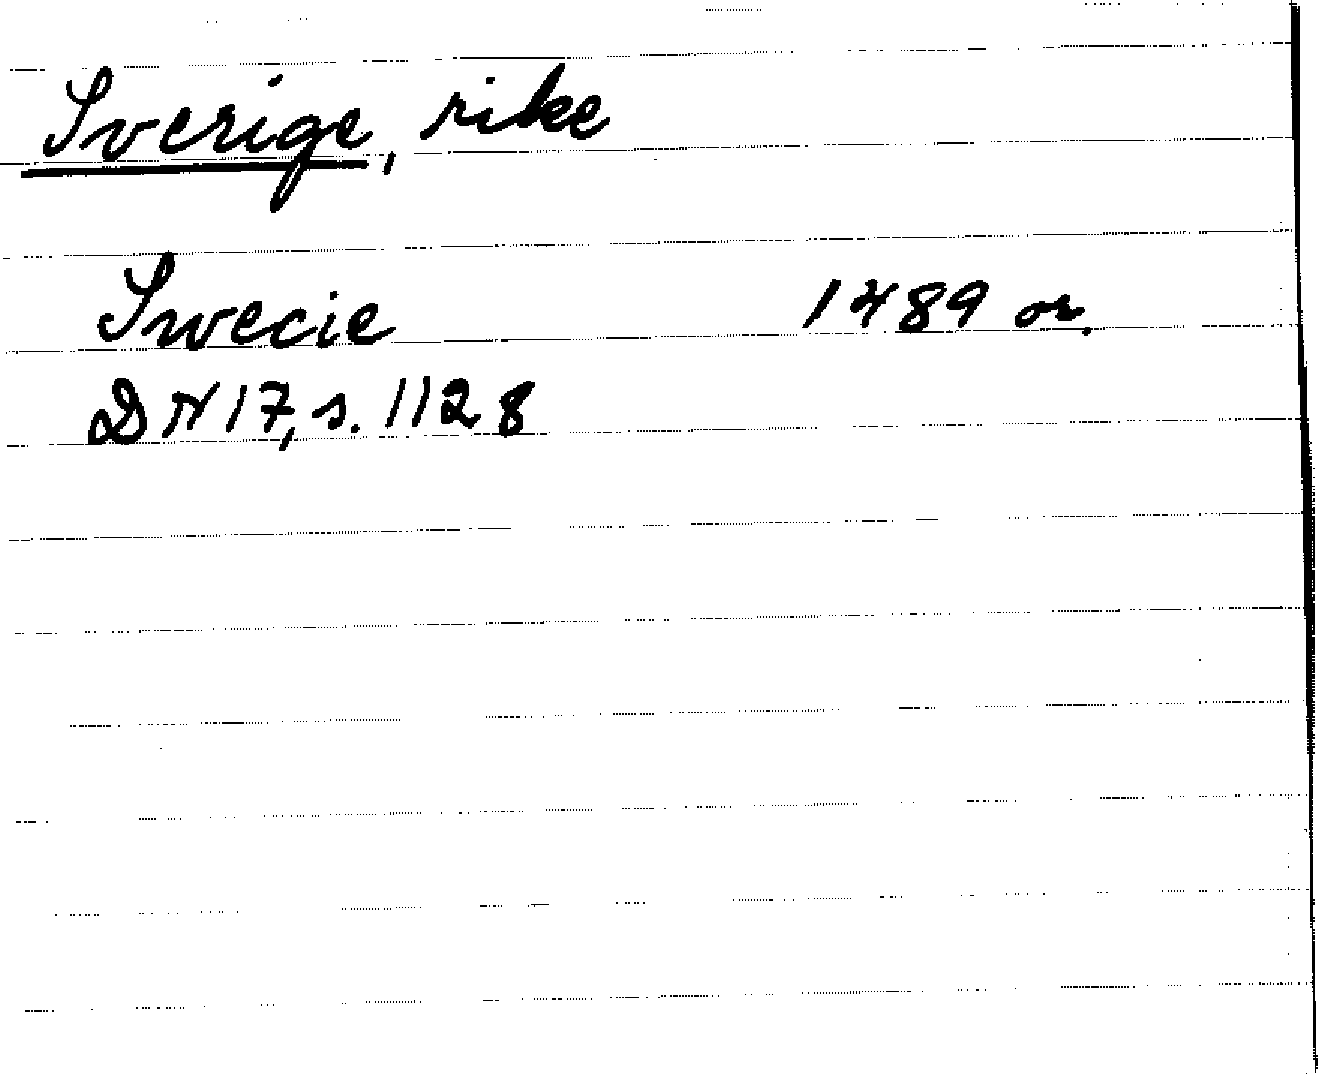 Sverige, rike
Swecie 1489 or.
DN 17, s. 1128